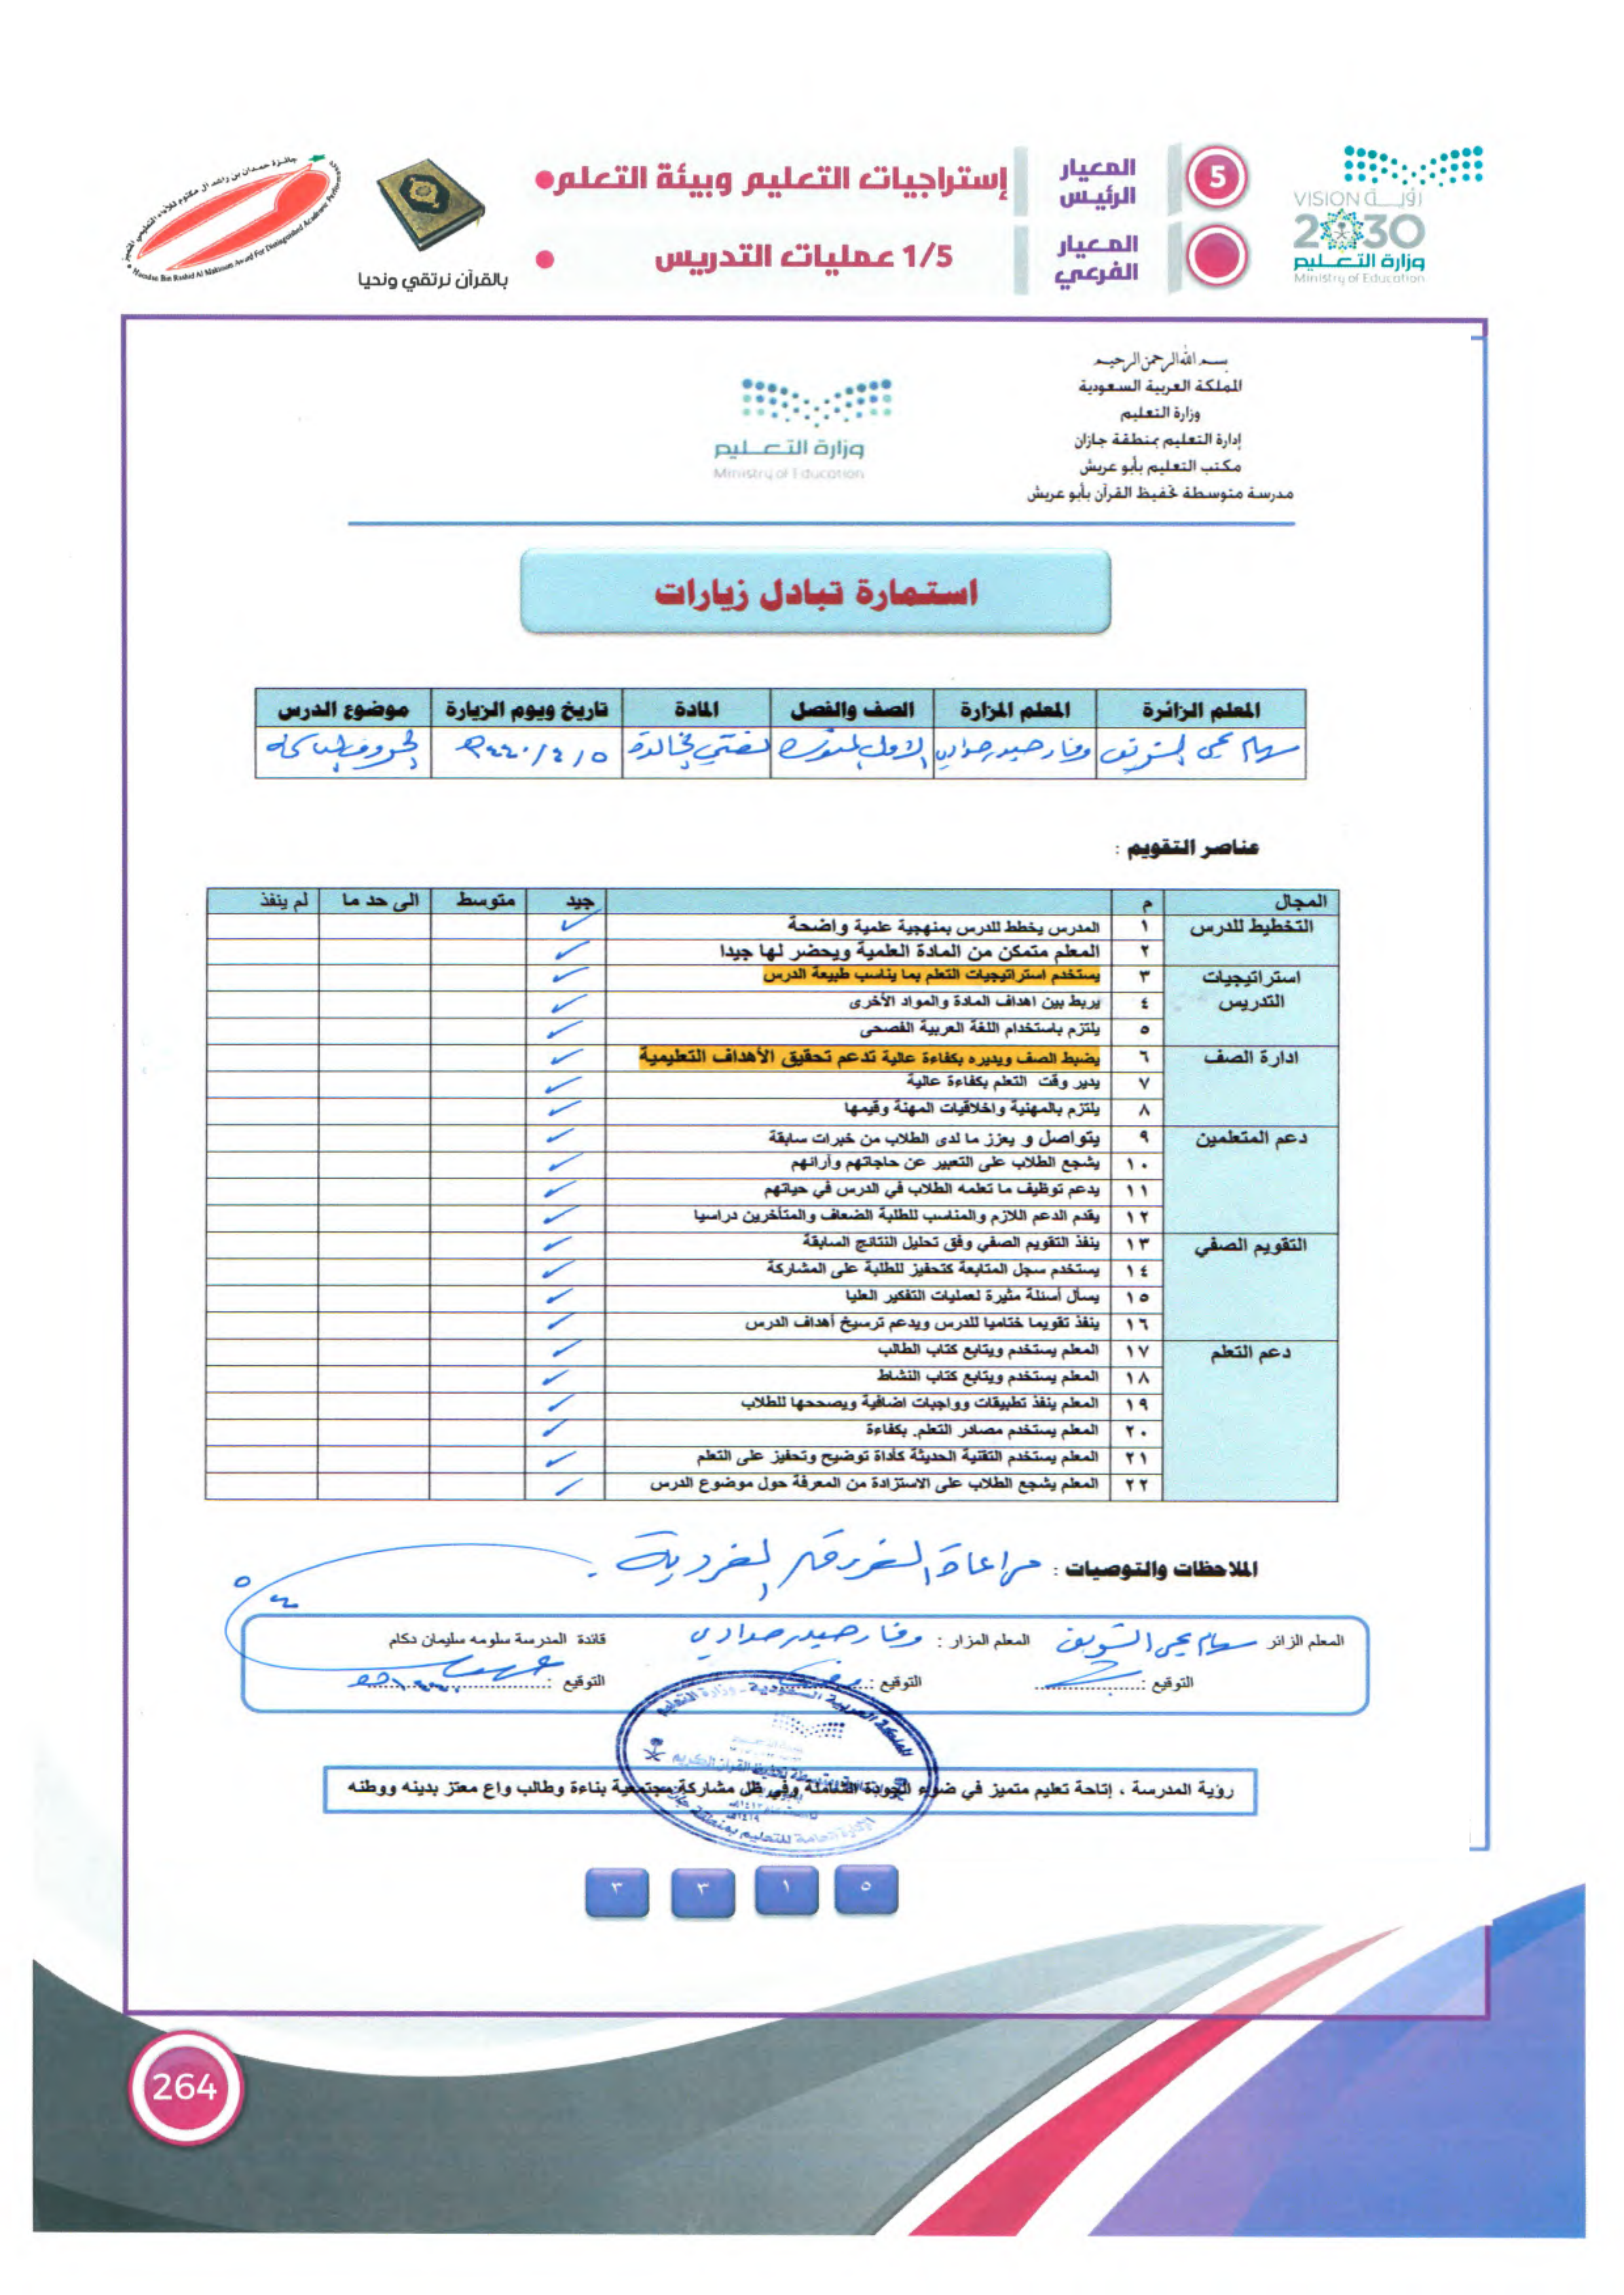 المعيار الرئيس
5
إستراتيجيات التعليم وبيئة التعلم
المعيار الفرعي
1/5 عمليات التدريس
رؤيــة VISION
2030
وزارة التعليم
Ministry of Education
بالقرآن نرتقي ونحيا
جائزة حمدان بن راشد آل مكتوم للأداء التعليمي المتميز
Hamdan Bin Rashid Al Maktoum Award For Distinguished Academic Performance
بسم الله الرحمن الرحيم
المملكة العربية السعودية
وزارة التعليم
إدارة التعليم بمنطقة جازان
مكتب التعليم بأبو عريش
مدرسة متوسطة تحفيظ القرآن بأبو عريش
وزارة التعليم
Ministry of Education
استمارة تبادل زيارات
المعلم الزائرة المعلم المزارة الصف والفصل المادة تاريخ ويوم الزيارة موضوع الدرس
سهام يحي الشويق وفا حيدر صوادي الاول متوسط لغتي الخالدة ٥ / ٤ / ١٤٤٠هـ
عناصر التقويم :
المجال م جيد متوسط الى حد ما لم ينفذ
التخطيط للدرس ١ المدرس يخطط للدرس بمنهجية علمية واضحة ✓
٢ المعلم متمكن من المادة العلمية ويحضر لها جيدا ✓
استراتيجيات التدريس ٣ يستخدم استراتيجيات التعلم بما يناسب طبيعة الدرس ✓
٤ يربط بين اهداف المادة والمواد الأخرى ✓
٥ يلتزم باستخدام اللغة العربية الفصحى ✓
ادارة الصف ٦ يضبط الصف ويديره بكفاءة عالية تدعم تحقيق الأهداف التعليمية ✓
٧ يدير وقت التعلم بكفاءة عالية ✓
٨ يلتزم بالمهنية واخلاقيات المهنة وقيمها ✓
دعم المتعلمين ٩ يتواصل و يعزز ما لدى الطلاب من خبرات سابقة ✓
١٠ يشجع الطلاب على التعبير عن حاجاتهم وآرائهم ✓
١١ يدعم توظيف ما تعلمه الطلاب في الدرس في حياتهم ✓
١٢ يقدم الدعم اللازم والمناسب للطلبة الضعاف والمتأخرين دراسيا ✓
التقويم الصفي ١٣ ينفذ التقويم الصفي وفق تحليل النتائج السابقة ✓
١٤ يستخدم سجل المتابعة كتحفيز للطلبة على المشاركة ✓
١٥ يسأل أسئلة مثيرة لعمليات التفكير العليا ✓
١٦ ينفذ تقويما ختاميا للدرس ويدعم ترسيخ أهداف الدرس ✓
دعم التعلم ١٧ المعلم يستخدم ويتابع كتاب الطالب ✓
١٨ المعلم يستخدم ويتابع كتاب النشاط ✓
١٩ المعلم ينفذ تطبيقات وواجبات اضافية ويصححها للطلاب ✓
٢٠ المعلم يستخدم مصادر التعلم. بكفاءة ✓
٢١ المعلم يستخدم التقنية الحديثة كأداة توضيح وتحفيز على التعلم ✓
٢٢ المعلم يشجع الطلاب على الاستزادة من المعرفة حول موضوع الدرس ✓
الملاحظات والتوصيات : مراعاة الفروق الفردية .
المعلم الزائر سهام يحي الشويق المعلم المزار : وفا حيدر صوادي قائدة المدرسة سلومه سليمان دكام
التوقيع : التوقيع : التوقيع :
رؤية المدرسة ، إتاحة تعليم متميز في ضوء الجودة الشاملة وفي ظل مشاركة مجتمعية بناءة وطالب واع معتز بدينه ووطنه
المملكة العربية السعودية - وزارة التعليم
الإدارة العامة للتعليم بمنطقة جازان
٥ ١ ٣ ٣
264